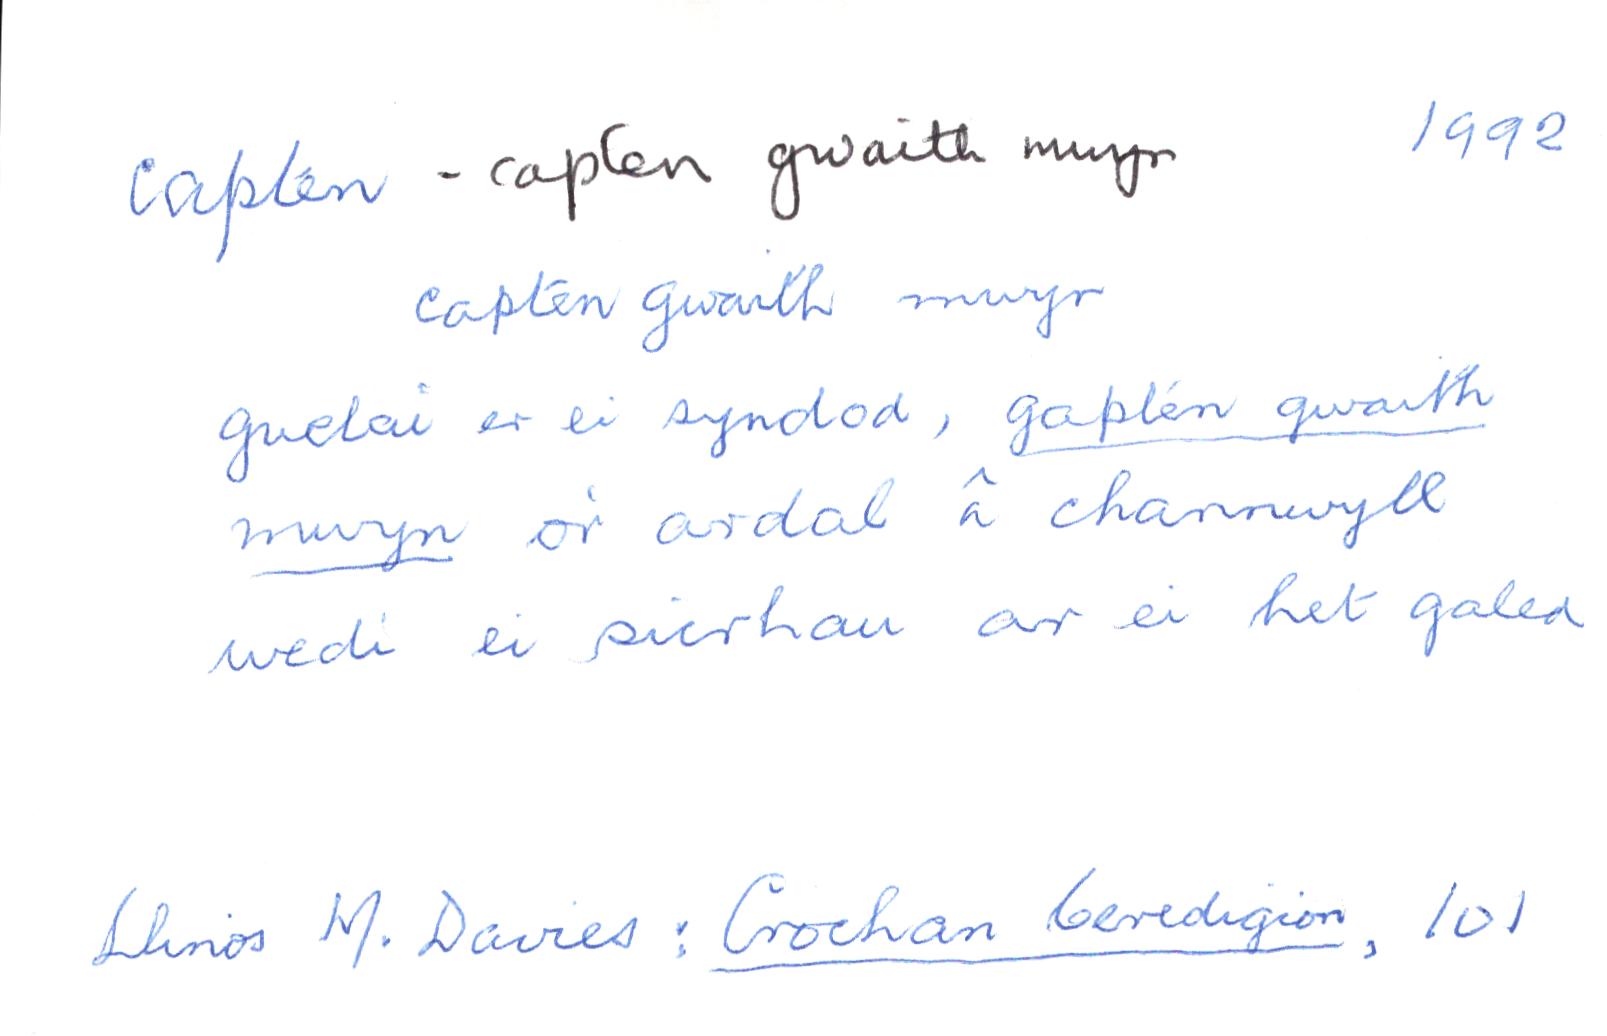 capten - capten gwaith mwyn 1992
capten gwaith mwyn
gwelai er ei syndod, gapten gwaith
mwyn o'r ardal â channwyll
wedi ei sicrhau ar ei het galed
Llinos M. Davies : Crochan Ceredigion, 101